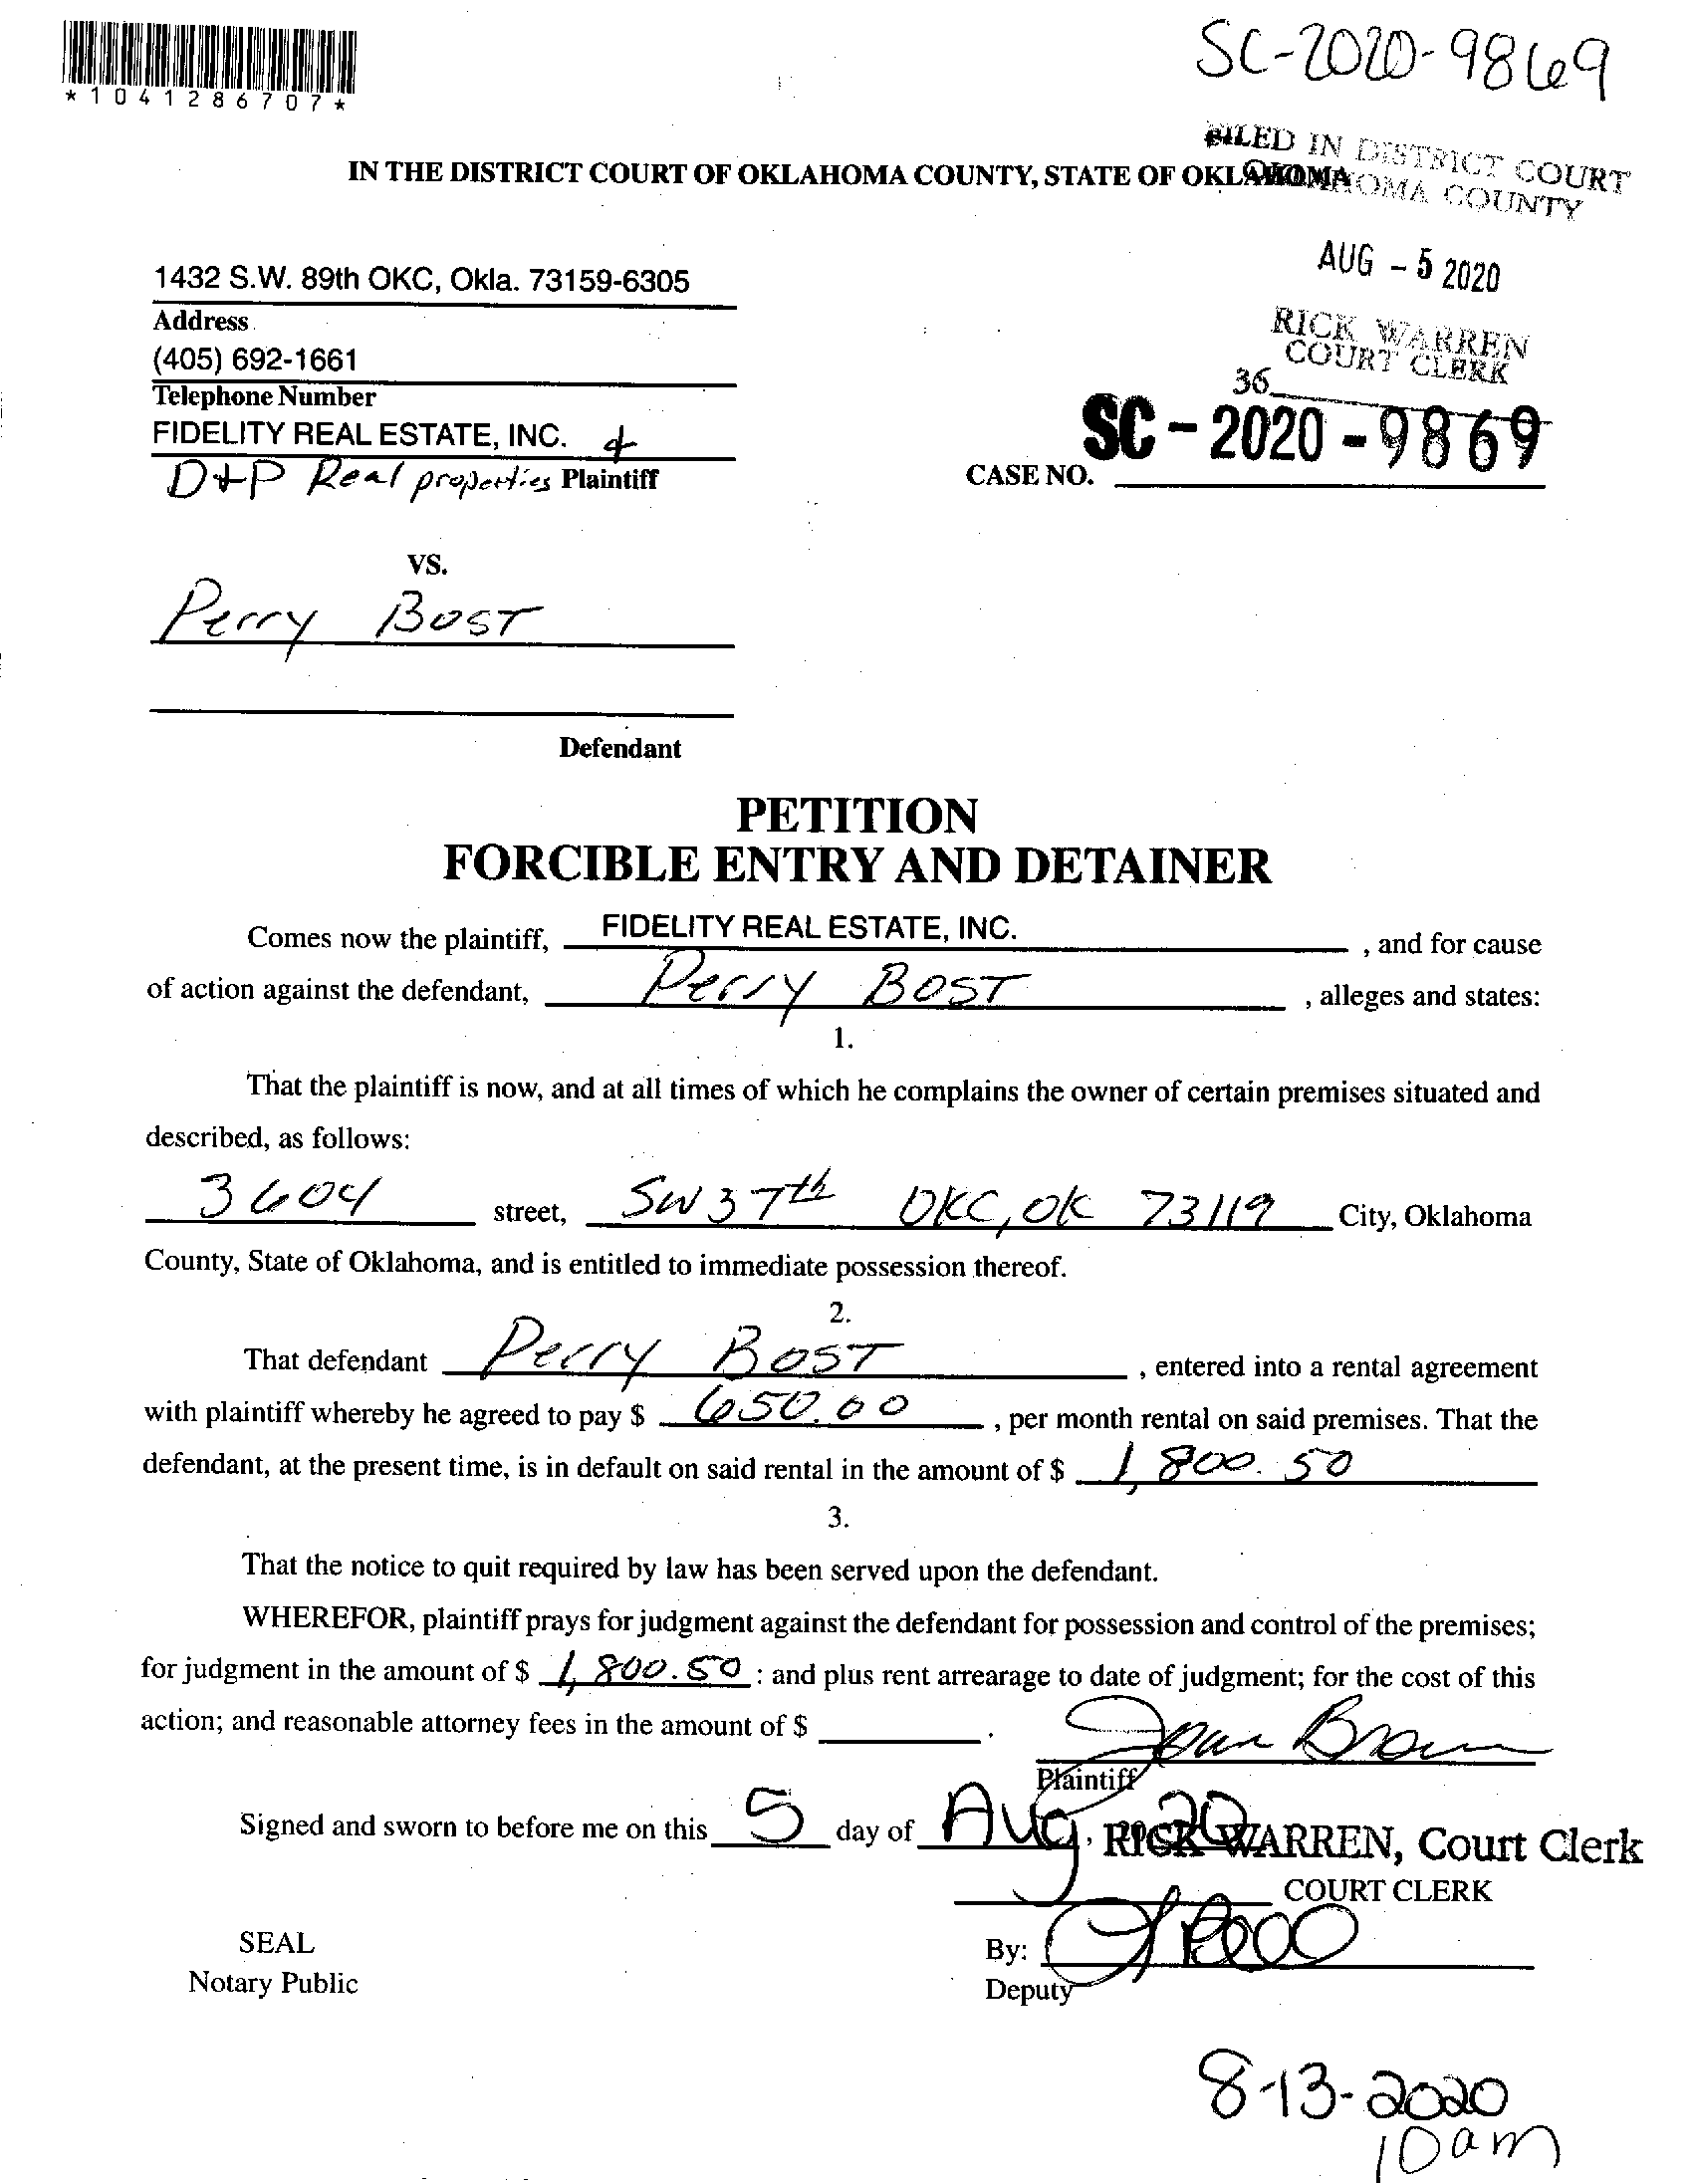 *1041286707*
SC-2020-9869
FILED IN DISTRICT COURT
OKLAHOMA COUNTY
IN THE DISTRICT COURT OF OKLAHOMA COUNTY, STATE OF OKLAHOMA
AUG - 5 2020
RICK WARREN
COURT CLERK
36
1432 S.W. 89th OKC, Okla. 73159-6305
Address
(405) 692-1661
Telephone Number
FIDELITY REAL ESTATE, INC. &
D+P Real properties Plaintiff
CASE NO. SC-2020-9869
VS.
Perry Bost
Defendant
PETITION
FORCIBLE ENTRY AND DETAINER
Comes now the plaintiff, FIDELITY REAL ESTATE, INC. , and for cause
of action against the defendant, Perry Bost , alleges and states:
1.
That the plaintiff is now, and at all times of which he complains the owner of certain premises situated and
described, as follows:
3604 street, SW 37th OKC, OK 73119 City, Oklahoma
County, State of Oklahoma, and is entitled to immediate possession thereof.
2.
That defendant Perry Bost , entered into a rental agreement
with plaintiff whereby he agreed to pay $ 650.00 , per month rental on said premises. That the
defendant, at the present time, is in default on said rental in the amount of $ 1,800.50
3.
That the notice to quit required by law has been served upon the defendant.
WHEREFOR, plaintiff prays for judgment against the defendant for possession and control of the premises;
for judgment in the amount of $ 1,800.50 : and plus rent arrearage to date of judgment; for the cost of this
action; and reasonable attorney fees in the amount of $ .
Joan Brown
Plaintiff
Signed and sworn to before me on this 5 day of Aug, 20
RICK WARREN, Court Clerk
COURT CLERK
SEAL
Notary Public
By:
Deputy
8-13-2020
10am